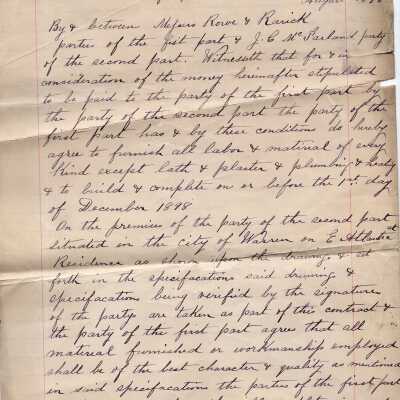 August
By & between Messrs Rowe & Rarick
parties of the first part & J. C. McFarland party
of the second part. Witnesseth that for & in
consideration of the money hereinafter stipulated
to be paid to the party of the first part by
the party of the second part the party of the
first part has & by these conditions do hereby
agree to furnish all labor & material of every
kind except lath & plaster & plumbing &
& to build & complete on or before the 1st day
of December 1898
On the premises of the party of the second part
situated in the City of Warren on E Atlantic st
Residence as shown upon the drawings & set
forth in the specifacations said drawing &
specifacations being verifid by the signature
of the partys are taken as part of this contract &
the party of the first part agree that all
material furnished or workmanship employed
shall be of the best character & quality as mentioned
in said specifacations the parties of the first part